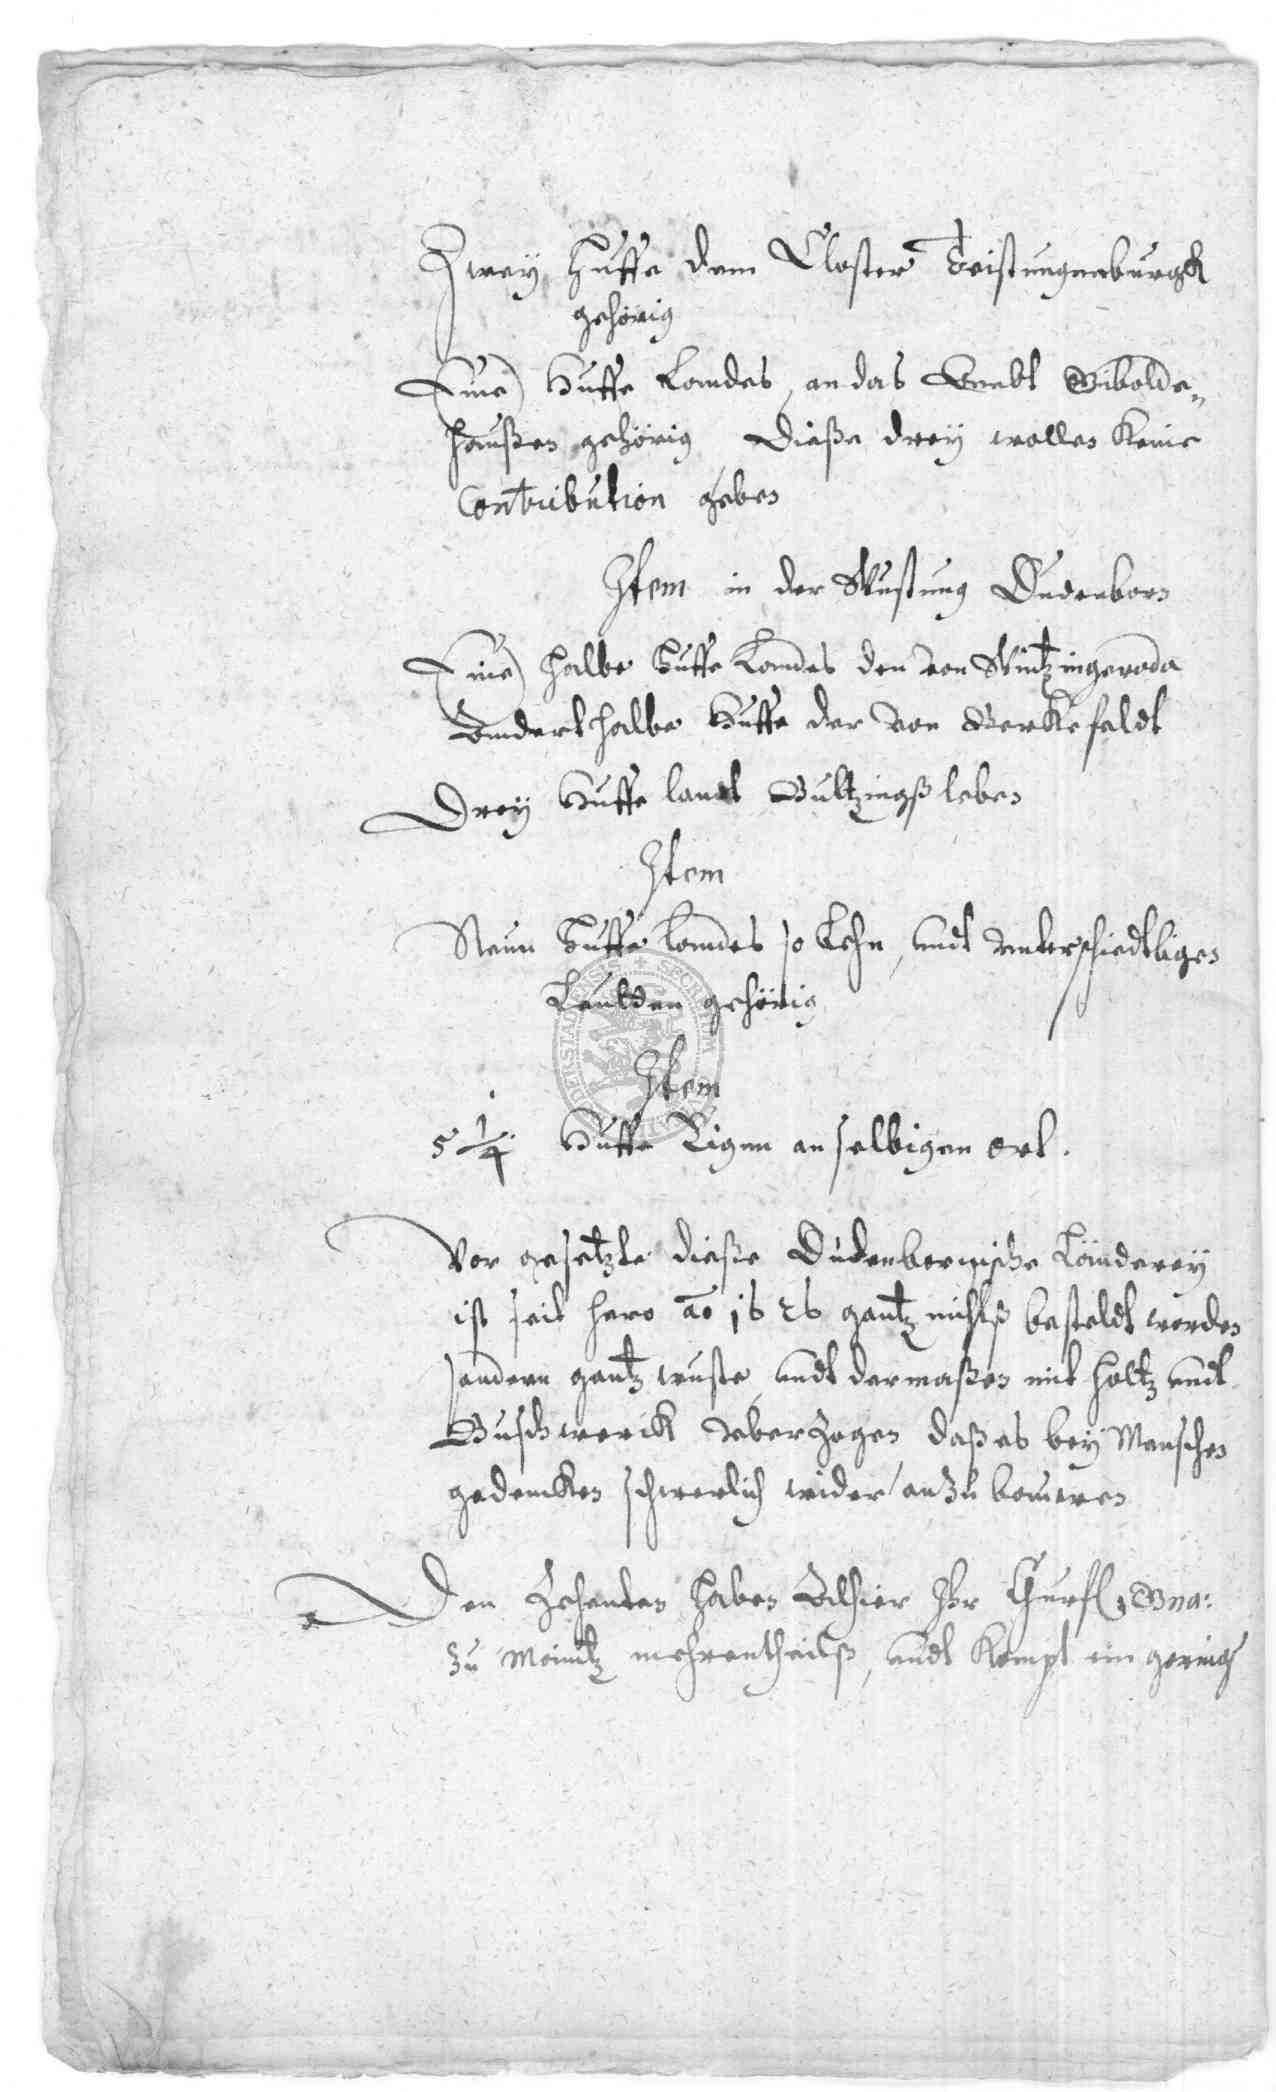 Zwey Huffe dem Closter Teistungenburgk
gehörig
Eine Huffe Landes, an das Ambt Gibolde„
haußen gehörig Dieße drey wollen keine
Contribution geben
Item in der Wustung Dudenborn
Eine halbe Huffe Landes den von Wintzingeroda
Anderthalbe Huffe der von Berkefeldt
Drey Huffe landt Bultzingßleben
Item
Neun Huffe landes so Lehn, undt unterschiedtligen
Leutden gehörig
Item
5 1/4 Huffe Eigen an selbigen ort.
Vor gesetzte dieße Dudenbornische Länderey
ist seit hero ao 1626 gantz nichtß besteldt worden
sondern gantz wuste, undt dermaßen mit holtz undt
Buschwerck uberzogen daß es bey Menschen
gedencken schwerlich wider anzu bauweren
Den Zehenten haben Alhier Ihr Churfl. Gna:
zu Meintz mehrentheilß, undt kompt ein gering